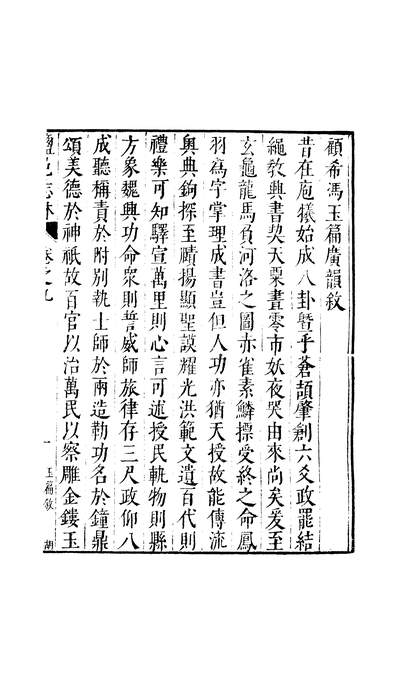 顧希馮玉篇廣韻敘
昔在庖犧始成八卦暨乎蒼頡肇創六爻政罷結
繩教興書契天粟晝零市妖夜哭由來尚矣爰至
玄龜龍馬負河洛之圖赤雀素鱗摽受終之命鳳
羽爲字掌理成書豈但人功亦猶天授故能傳流
奧典鉤探至賾揚顯聖謨耀光洪範文遺百代則
禮樂可知驛宣萬里則心言可述授民軌物則縣
方象魏興功命衆則誓威師旅律存三尺政仰八
成聽稱責於附别執士師於兩造勒功名於鐘鼎
頌美德於神祇故百官以治萬民以察雕金鏤玉
鹽邑志林
卷之九
一
玉篇敘
胡